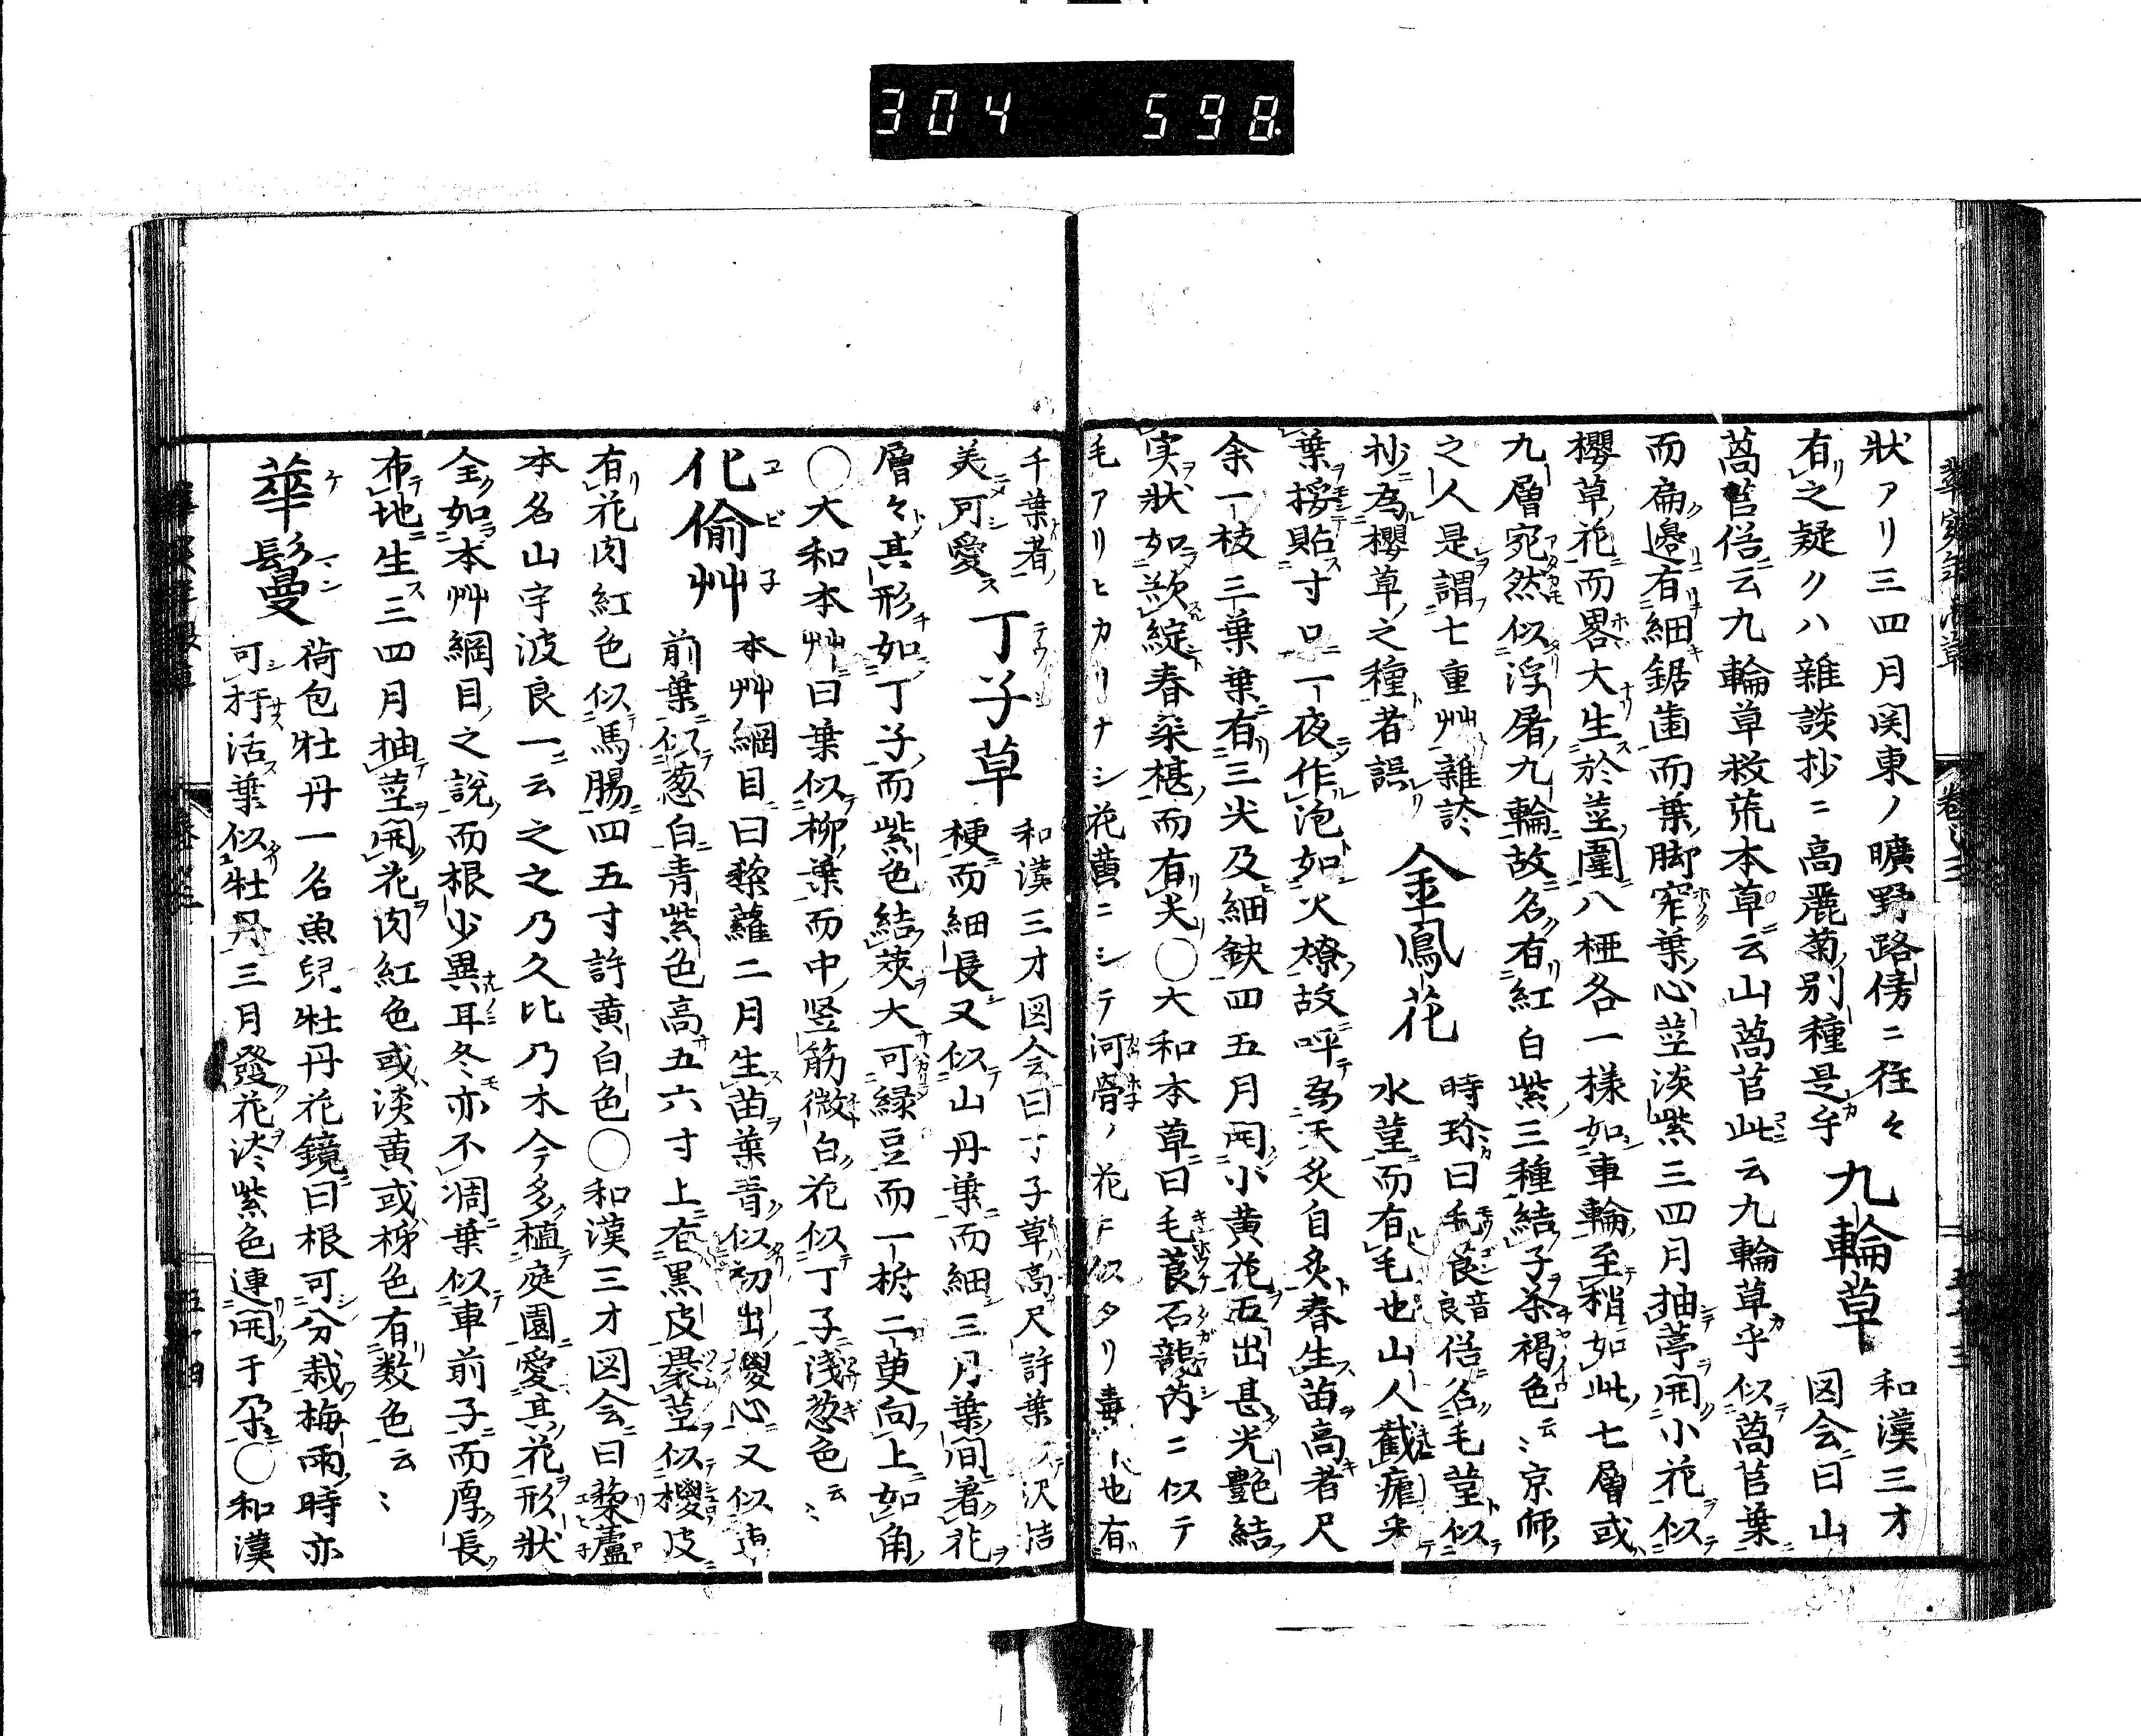 304 598
狀アリ三四月関東ノ曠野路傍ニ徃々
有之疑クハ雜談抄ニ高麗菊別種是乎 九輪草 和漢三才
図会曰山
萵苣俗云九輪草救荒本草云山萵苣此云九輪草乎似萵苣葉
而扁邊有細鋸歯而葉脚窄葉心莖淡紫三四月抽葶開小花似
櫻草花而畧大生於莖圍八椏各一樣如車輪至稍如此七層或
九層宛然似浮屠九輪故名有紅白紫三種結子茶褐色云〻京師
之人是謂七重艸雜談
抄為櫻草之種者誤 金鳳花 時珍曰毛莨音良俗名毛菫似
水菫而有毛也山人截瘧采
葉挼貼寸口一夜作泡如火燎故呼為天灸自灸春生苗高者尺
余一枝三葉葉有三尖及細缺四五月開小黄花五出甚光艶結
実狀如欲綻春桒椹而有尖〇大和本草曰毛莨石龍芮ニ似テ
毛アリヒカリナシ花黄ニシテ河骨ノ花ニ似タリ毒也有
千葉者
美可愛 丁子草 和漢三才図会曰丁子草高尺許葉
梗而細長又似山丹葉而細三月葉間着花
層々其形如丁子而紫色結莢大可緑豆而一椏二莄向上如角
〇大和本艸曰葉似柳葉而中竖筋微白花似丁子浅葱色云〻
化偷艸 本艸綱目曰藜蘿二月生苗葉青似初出㯶心又似
前葉似葱白青紫色高五六寸上有黒皮裹莖似㯶皮
有花肉紅色似馬腸四五寸許黄白色〇和漢三才図会曰藜蘆
本名山宇波良一云之之乃久比乃木今多植庭園愛其花形狀
全如本艸綱目之說而根少異耳冬亦不凋葉似車前子而厚長
布地生三四月抽莖開花肉紅色或淡黄或㭲色有数色云〻
華鬘 荷包牡丹一名魚兒牡丹花鏡曰根可分栽梅雨時亦
可扦活葉似牡丹三月發花淡紫色連開于朶〇和漢